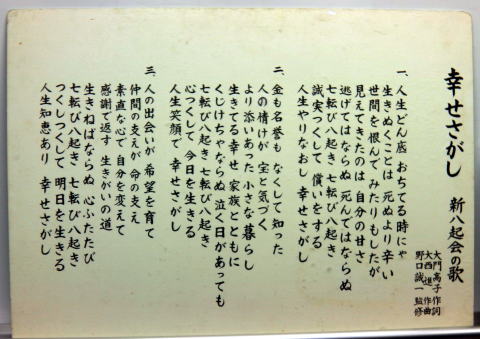 幸せさがし 新八起会の歌
大門高子 作詞
大西進 作曲
野口誠一 監修
一、人生どん底 おちてる時にゃ
生きぬくことは 死ぬより辛い
世間を恨んで みたりもしたが
見えてきたのは 自分の甘さ
逃げてはならぬ 死んではならぬ
七転び八起き 七転び八起き
誠実つくして 償いをする
人生やりなおし 幸せさがし
二、金も名誉も なくして知った
人の情けが 宝と気づく
より添いあった 小さな暮らし
生きてる幸せ 家族とともに
くじけちゃならぬ 泣く日があっても
七転び八起き 七転び八起き
心つくして 今日を生きる
人生笑顔で 幸せさがし
三、人の出会いが 希望を育て
仲間の支えが 命の支え
素直な心で 自分を変えて
感謝で返す 生きがいの道
生きねばならぬ 心ふたたび
七転び八起き 七転び八起き
つくしつくして 明日を生きる
人生知恵あり 幸せさがし